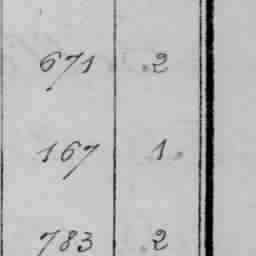 671 .2
167 1.
783 .2